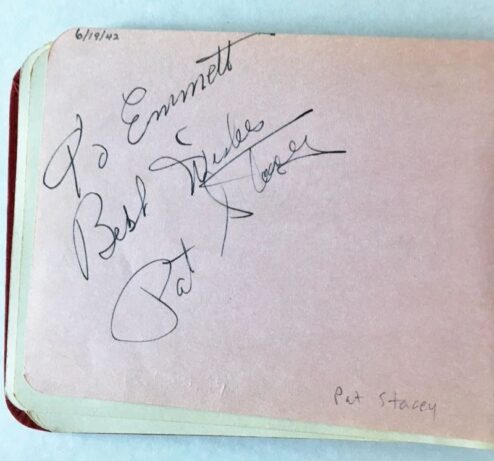 6/19/42
To Emmett
Best Wishes
Pat Stacey
Pat Stacey